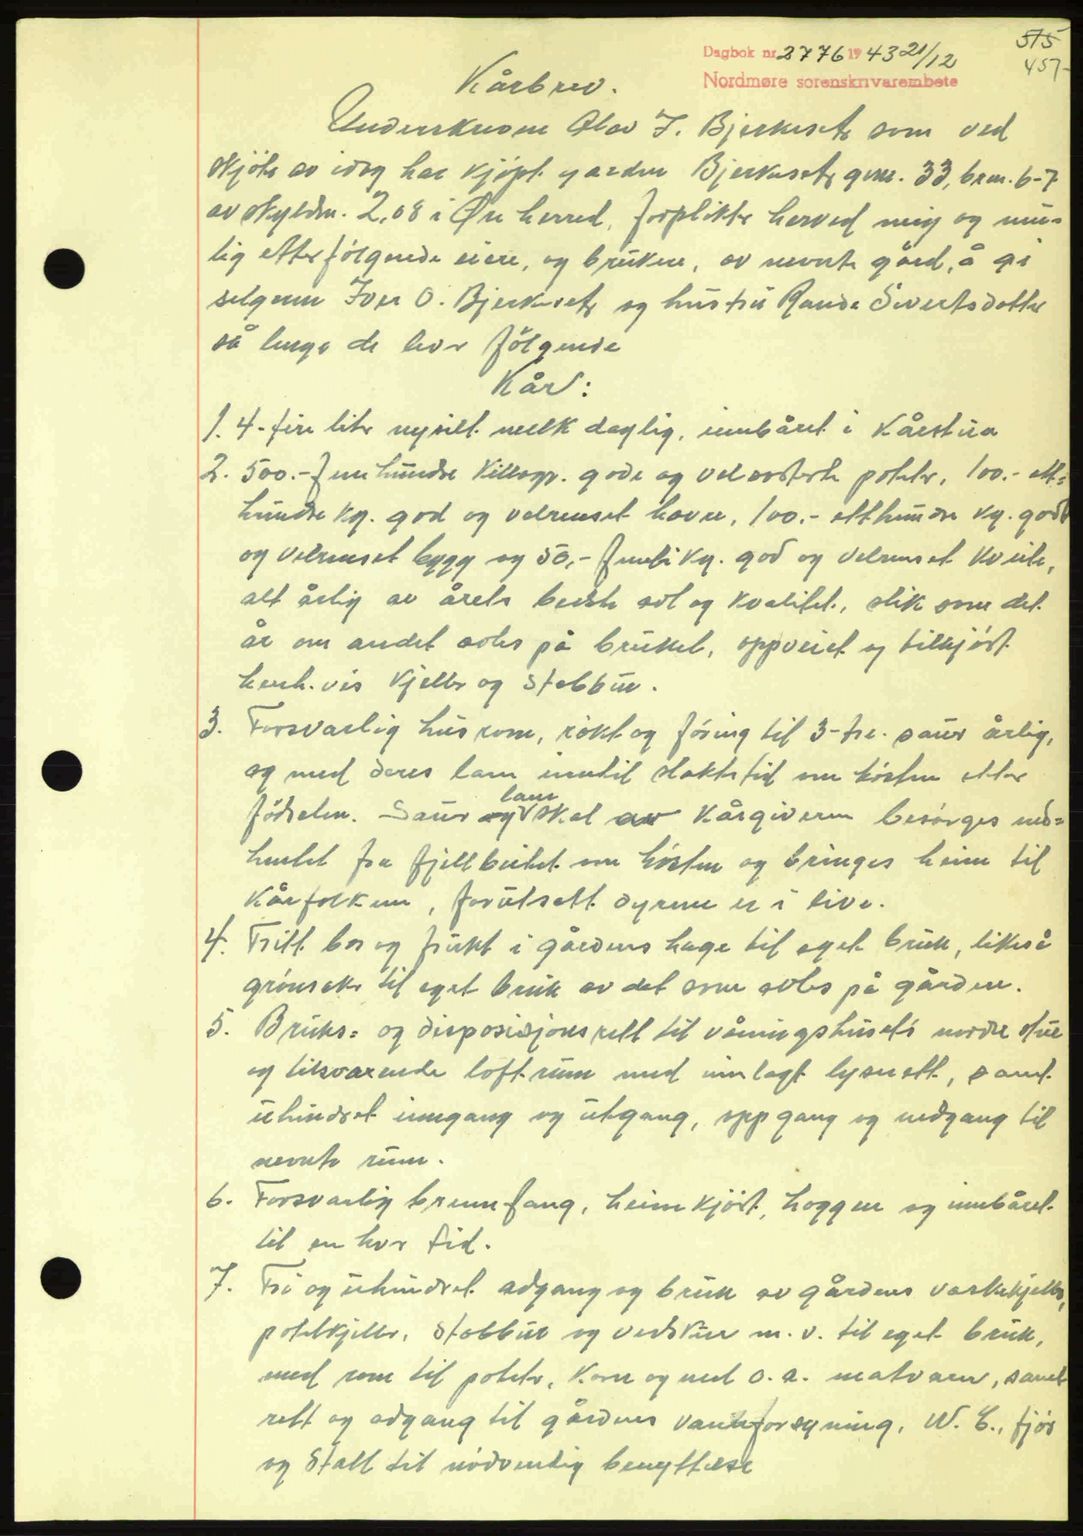 515
457-
Dagbok nr. 2776 1943 21/12
Nordmøre sorenskrivarembete
Kårbrev.
Underskrevne Olav I. Bjerkeset som ved
skjøte av idag har kjøpt garden Bjerkeset gnr. 33, brn. 6-7
av skyldm. 2,08 i Øre herred, forplikter herved meg og mu=
lig etterfølgende eiere, og brukere, av nevnte gård, å gi
selgeren Iver O. Bjerkeset og hustru Randi Sivertsdotter
så lenge de lever følgende
Kår:
1. 4- fire liter nysilt melk daglig, innbåret i Kårstua
2. 500.- femhundre Killogr. gode og velsorterte poteter, 100.- ett=
hundre kg. god og velrenset havre, 100.- etthundre kg. god
og velrenset bygg og 50,- femti kg. god og velrenset kveite,
alt årlig av årets beste avl og kvalitet, slik som det
år om andet avles på bruket, oppveiet og tilkjørt
henh.vis Kjeller og Stabbur.
3. Forsvarlig husrom, røkt og foring til 3- tre. sauer årlig,
og med deres lam inntil slaktetid om høsten etter
fødselen. Sauer og lam skal av Kårgiveren besørges ned=
hentet fra fjellbeitet om høsten og bringes heim til
Kårfolkene, forutsatt dyrene er i live.
4. Fritt bær og frukt i gårdens hage til eget bruk, likeså
grønsaker til eget bruk av det som avles på gården.
5. Bruks= og disposisjonsrett til våningshusets nordre stue
og tilsvarende loftrum med innlagt lysnett, samt
uhindret inngang og utgang, oppgang og nedgang til
nevnte rum.
6. Forsvarlig brennfang, heimkjørt, hoggen og innbåret
til en hver tid.
7. Fri og uhindret adgang og bruk av gårdens vaskekjeller,
potetkjeller, Stabbur og vedskur m.v. til eget bruk,
med rom til poteter, Korn og mel o.a. matvarer, samt
rett og adgang til gårdens vannforsyning, W.C., fjøs
og Stall til nødvendig benyttelse